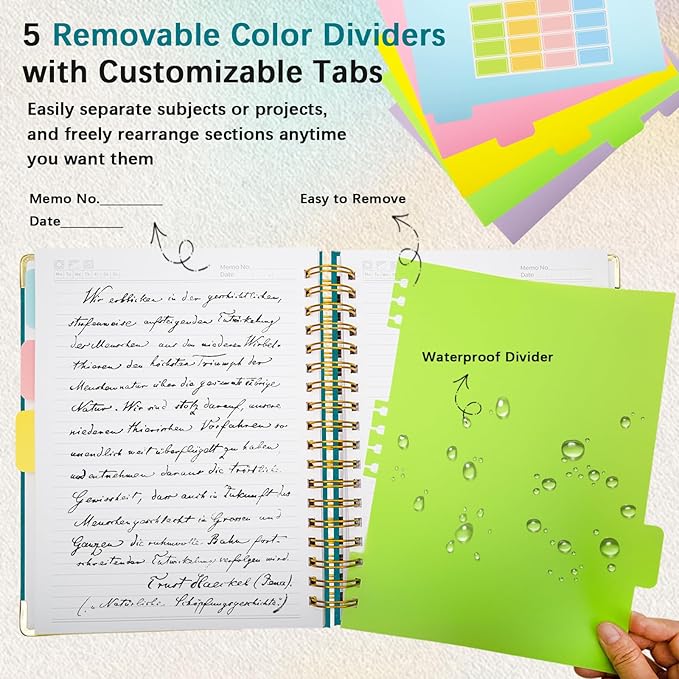 5 Removable Color Dividers
with Customizable Tabs
Easily separate subjects or projects,
and freely rearrange sections anytime
you want them
Memo No.________
Date________
Easy to Remove
Memo No.
Date
Memo No.
Date
Waterproof Divider
Wir erblicken in der geschichtlichen,
stufenweise aufsteigenden Entwickelung
der Menschen aus den niederen Wirbel-
thieren den höchsten Triumph der
Menschennatur über die gesammte übrige
Natur. Wir sind stolz darauf, unsere
niederen thierischen Vorfahren so
unendlich weit überflügelt zu haben
und entnehmen daraus die tröstliche
Gewissheit, dass auch in Zukunft das
Menschengeschlecht im Grossen und
Ganzen die ruhmvolle Bahn fort-
schreitender Entwickelung verfolgen wird
Ernst Haeckel (Jena).
(„Natürliche Schöpfungsgeschichte“)